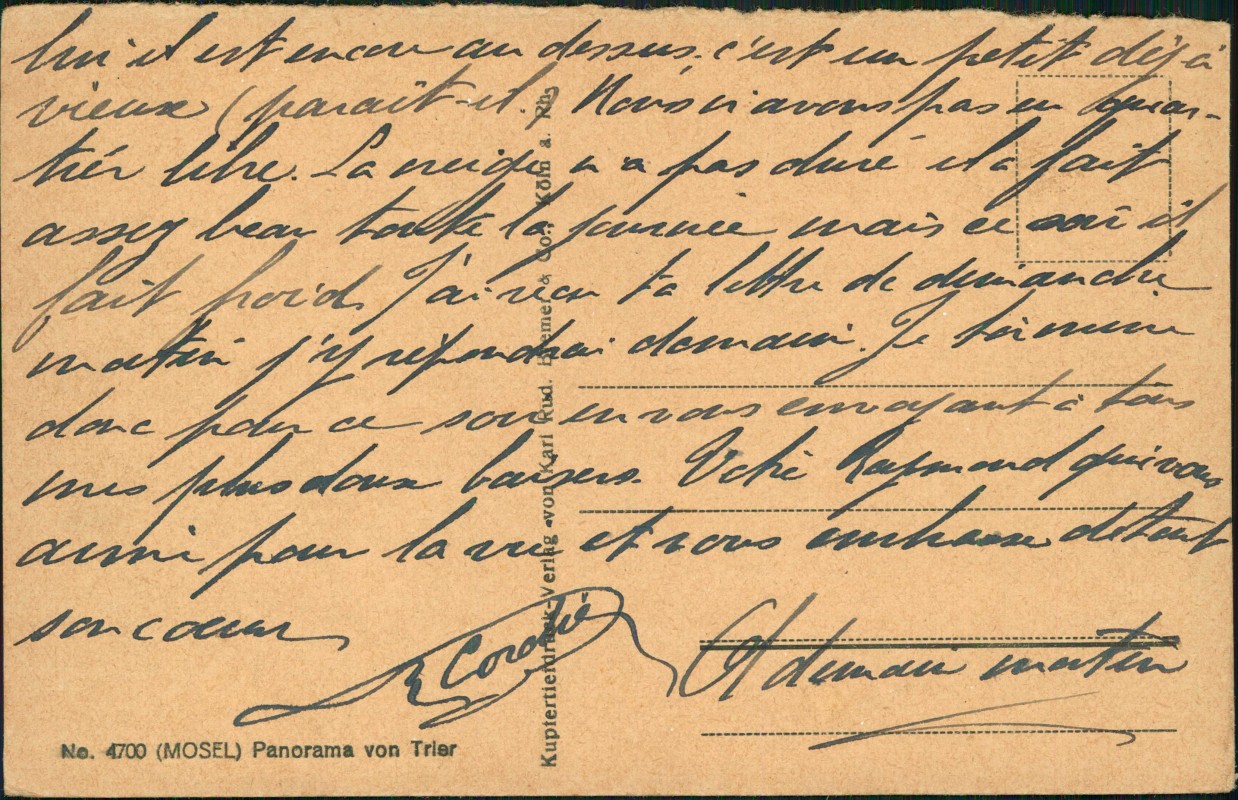 lui il est encore au dessus. c'est un petit déjà
vieux (parait-il.) Nous n'avons pas eu quar-
tier libre. La neige n'a pas duré il a fait
assez beau toute la journée mais ce soir il
fait froid. J'ai reçu ta lettre de dimanche
matin j'y répondrai demain. Je termine
donc pour ce soir en vous envoyant à tous
mes plus doux baisers. Votre Raymond qui vous
aime pour la vie et vous embrasse de tout
son coeur
R
A demain matin
No. 4700 (MOSEL) Panorama von Trier
Kupfertiefdruck-Verlag von Karl Rud. Bremer & Co., Köln a. Rh.